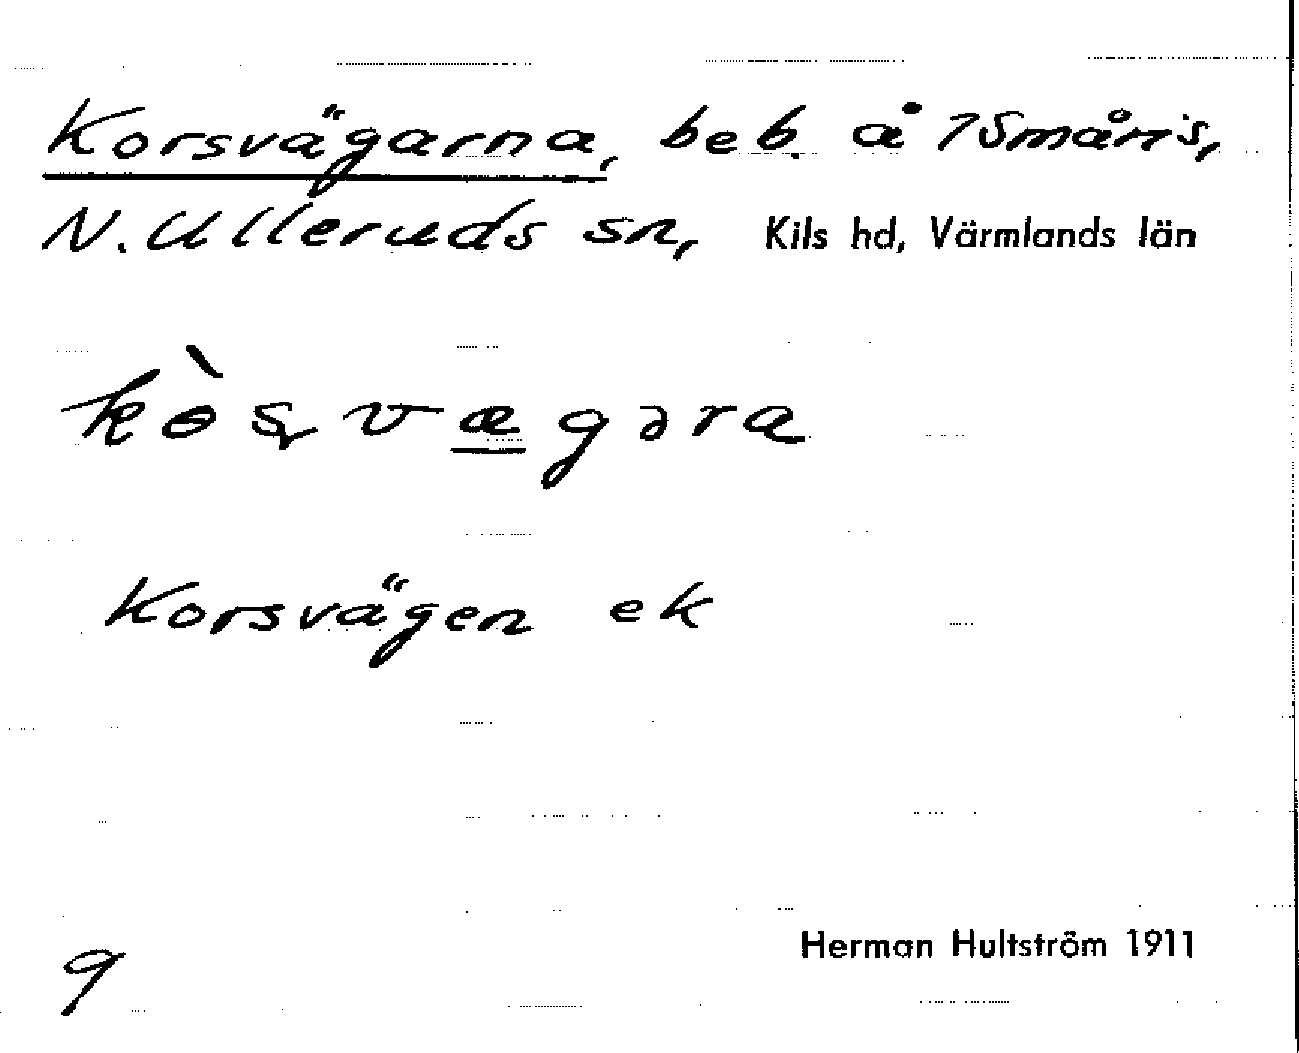 Korsvägarna, beb. å 7 Småris,
N. Ulleruds sn, Kils hd, Värmlands län
kɵ̀ʂvægəra
Korsvägen ek
9
Herman Hultström 1911